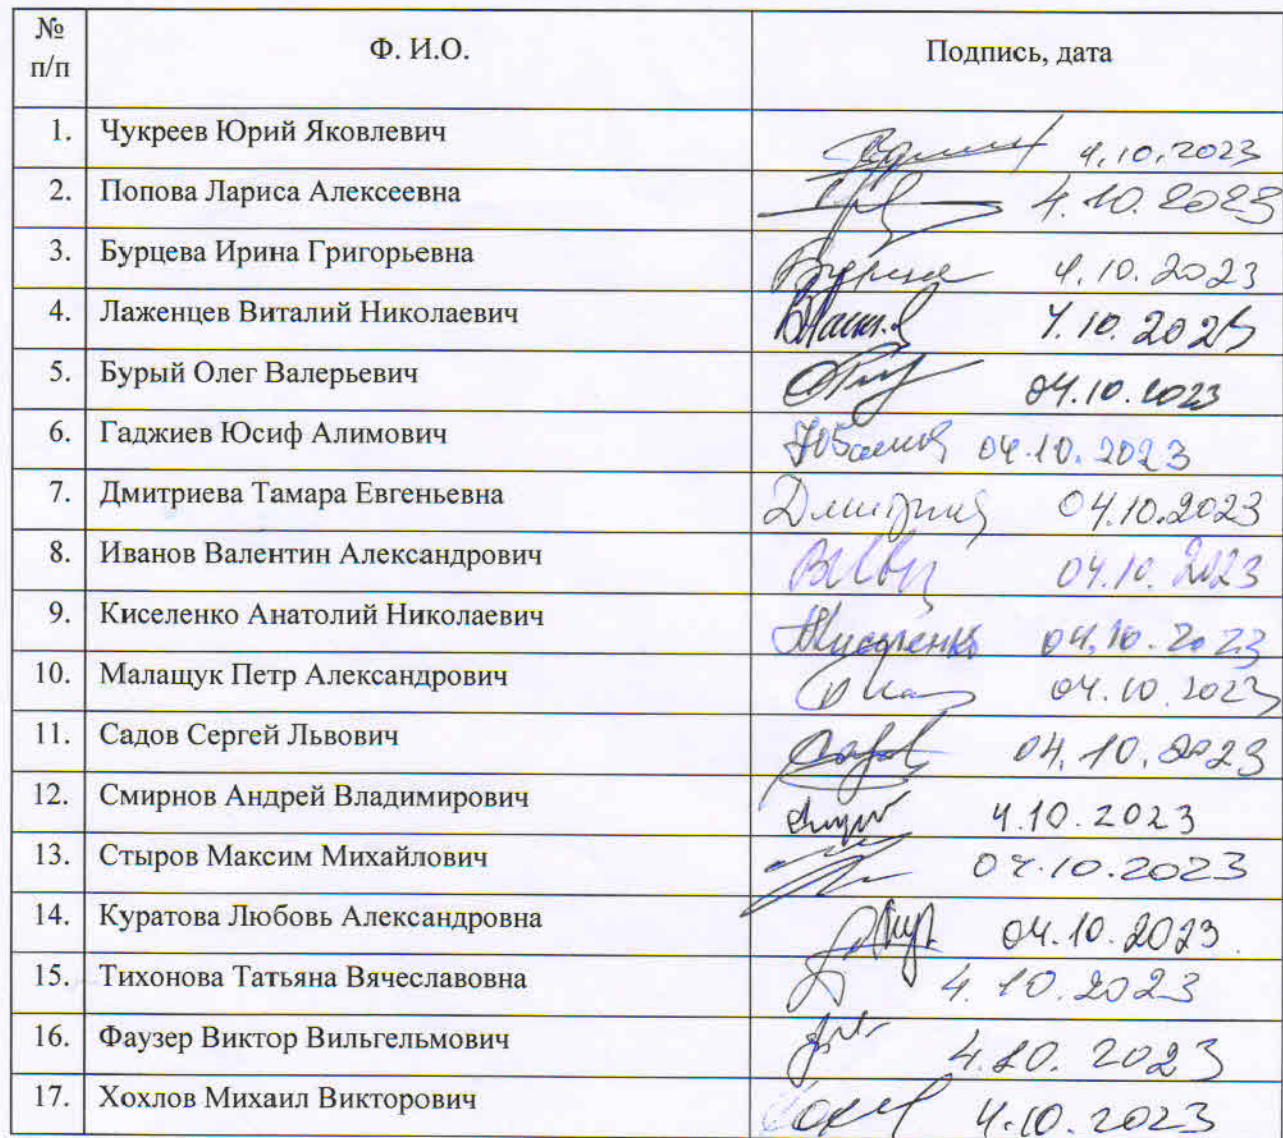 № п/п Ф. И.О. Подпись, дата
1. Чукреев Юрий Яковлевич 4.10.2023
2. Попова Лариса Алексеевна 4.10.2023
3. Бурцева Ирина Григорьевна 4.10.2023
4. Лаженцев Виталий Николаевич 4.10.2023
5. Бурый Олег Валерьевич 04.10.2023
6. Гаджиев Юсиф Алимович 04.10.2023
7. Дмитриева Тамара Евгеньевна 04.10.2023
8. Иванов Валентин Александрович 04.10.2023
9. Киселенко Анатолий Николаевич 04.10.2023
10. Малащук Петр Александрович 04.10.2023
11. Садов Сергей Львович 04.10.2023
12. Смирнов Андрей Владимирович 4.10.2023
13. Стыров Максим Михайлович 04.10.2023
14. Куратова Любовь Александровна 04.10.2023
15. Тихонова Татьяна Вячеславовна 4.10.2023
16. Фаузер Виктор Вильгельмович 4.10.2023
17. Хохлов Михаил Викторович 4.10.2023